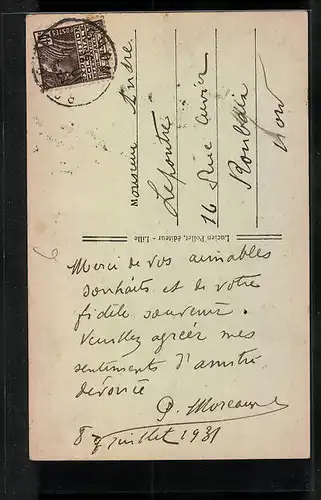 Monsieur André
Lepoutre
16 Rue Cuvier
Roubaix
Nord
Lucien Pollet, éditeur - Lille
Merci de vos aimables
souhaits et de votre
fidèle souvenir.
Veuillez agréer mes
sentiments d'amitié
dévouée
8 Juillet 1931
POSTES